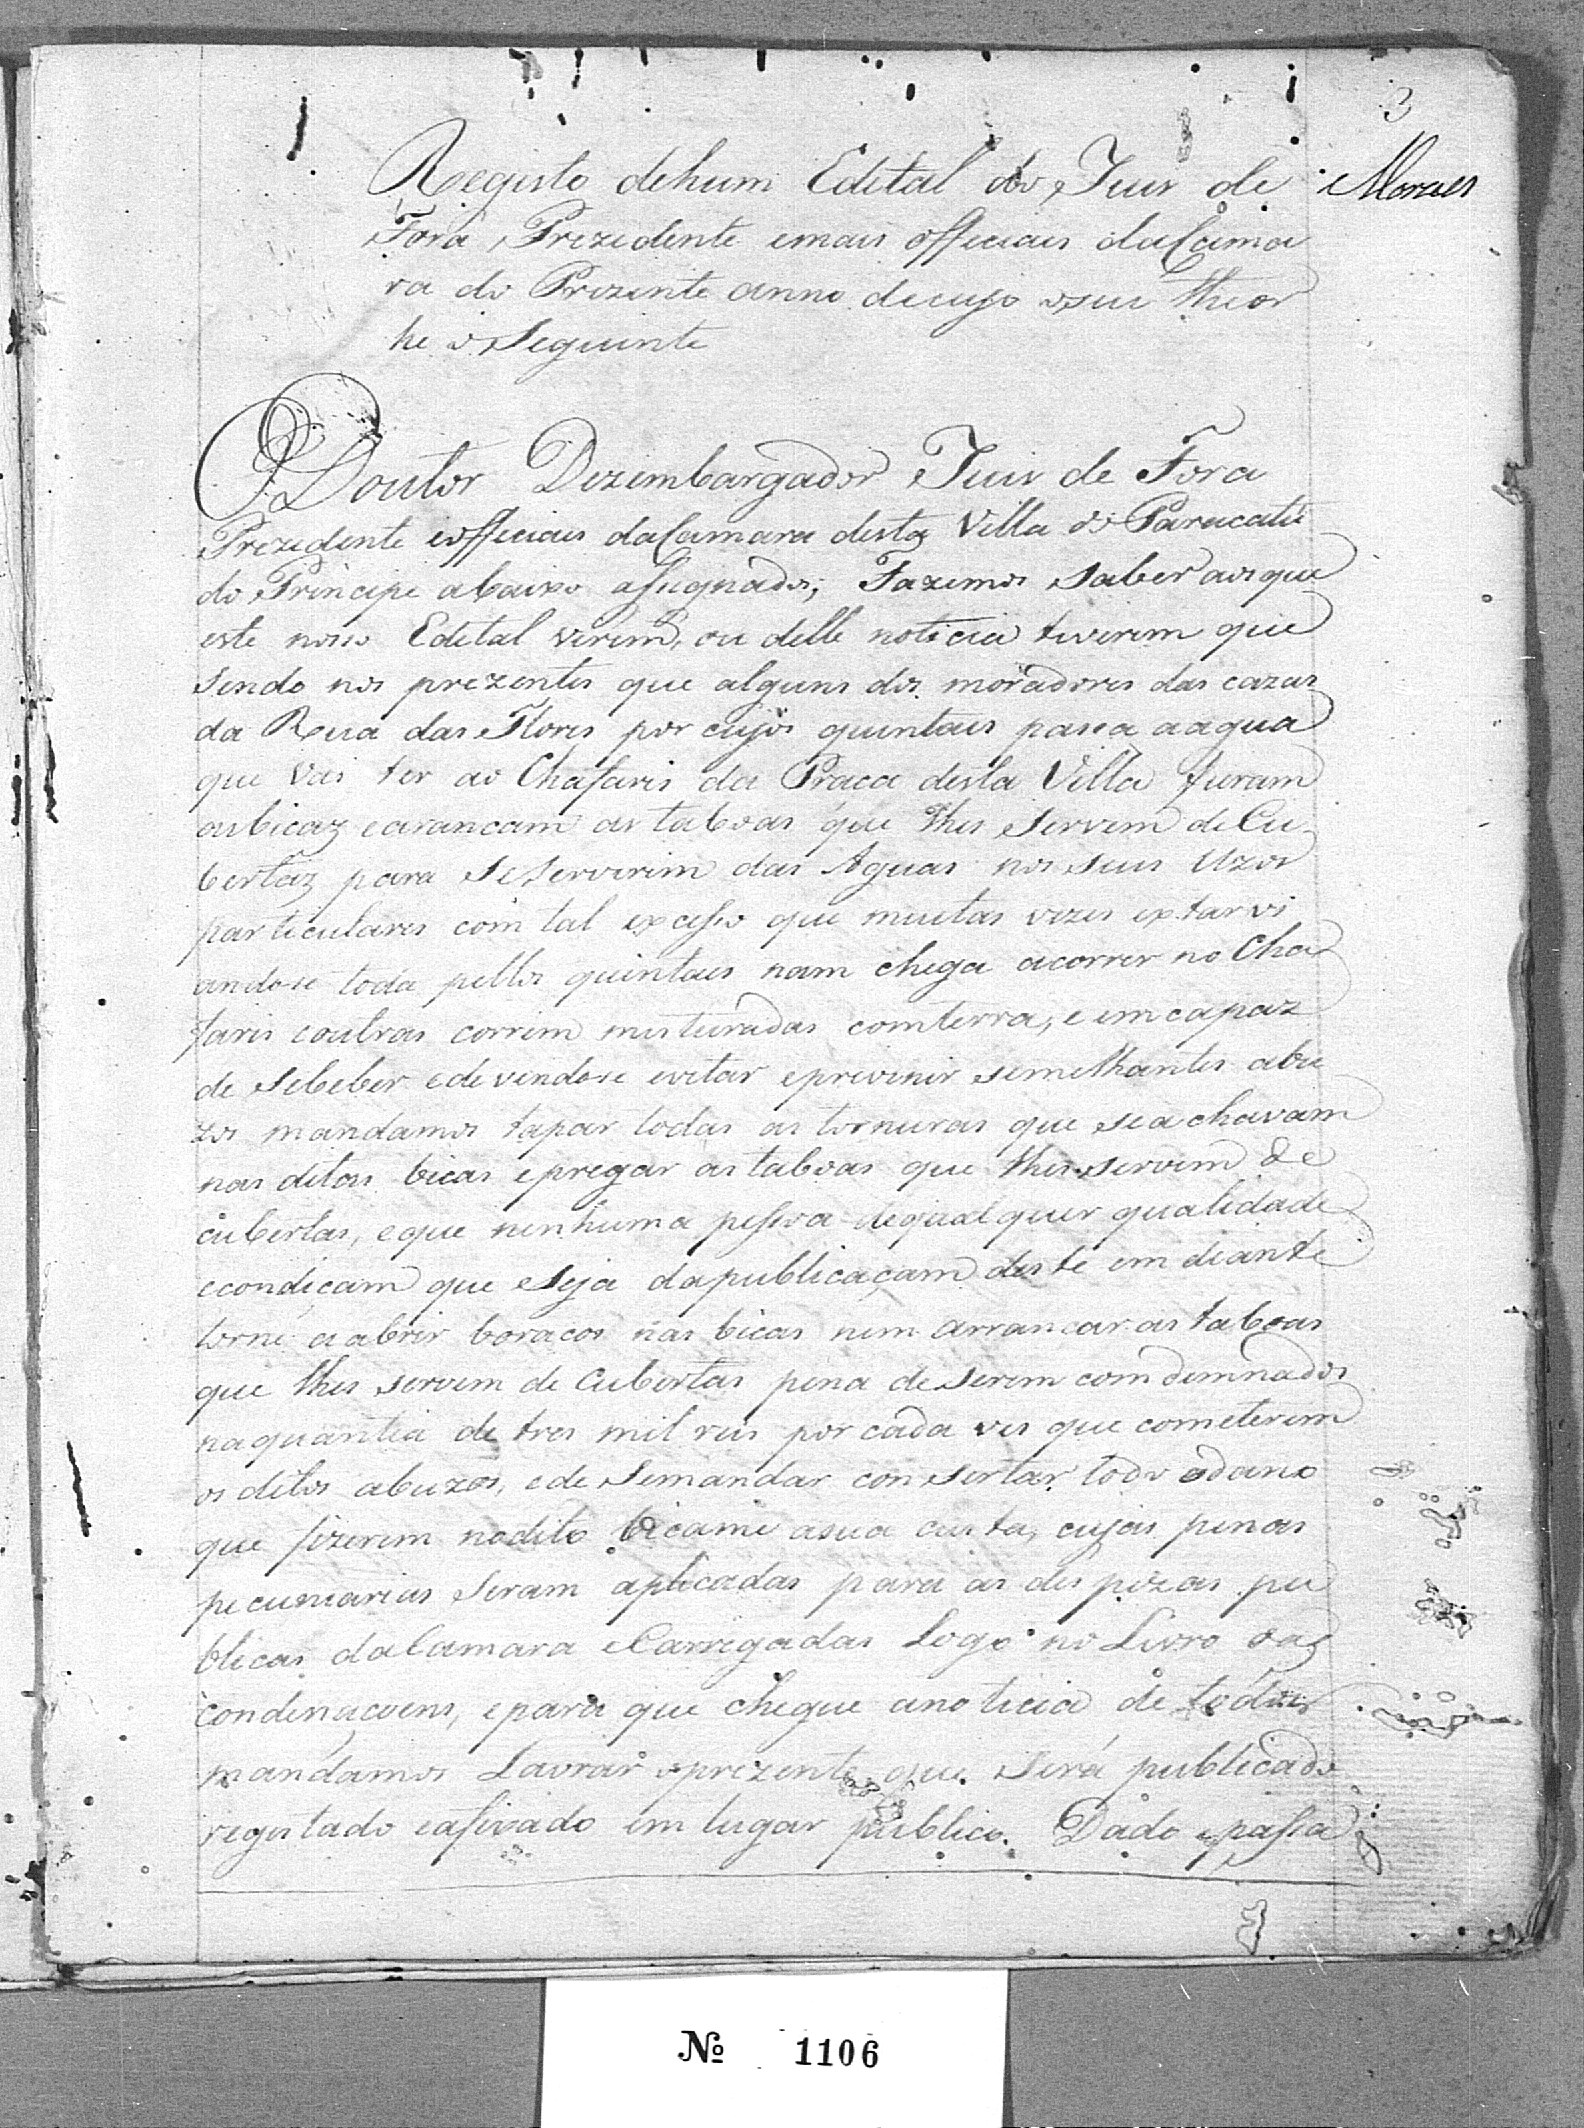 3
Moraes
Registo dehum Edital do Juis de
Fora Prezidente emais officiais daCama
ra do Prezente anno decujo oseu theor
he o Seguinte
O Doutor Dezembargador Juis de Fora
Prezidente eofficiais daCamara desta Villa do Paracatú
do Principe abaixo assignados; Fazemos Saber aosque
este nosso Edital virem, ou delle noticia tiverem que
sendo nos prezentes que alguns dos moradores das cazas
da Rua das Flores por cujos quintais passa aagua
que Vai ter ao Chafaris da Praca desta Villa furam
asbicaz earancam as taboas que lhes Servem deCu
bertaz para Seservirem das Aguas nos seus Uzos
particulares com tal excesso que muitas vezes extarvi
andose toda pellos quintais nam chega acorrer no Cha
faris eoutras correm misturadas comterra, e emcapaz
de Sebeber edevendose evitar eprevenir semelhantes abu
zos mandamos tapar todas as tornuras que seachavam
nas ditas bicas epregar as taboas que lhes servem de
cubertas, eque nenhuma pessoa dequalquer qualidade
econdicam que Seja dapublicaçam deste em diante
torne aabrir boracos nas bicas nem arrancar as taboas
que lhes servem de Cubertas pena deserem comdemnados
naquantia de tres mil reis por cada ves que cometerem
os ditos abuzos, ede Semandar conSertar todo odano
que fizerem nodito bicame asua custa, cujas penas
pecuniarias Seram aplicadas para as despezas pu
blicas daCamara eCarregadas Logo no Livro das
condenaçoens, epara que chegue anoticia de todos
mandamos Lavrar oprezente que Será publicado
registado eafixado em lugar publico. Dado epassa
Nº 1106